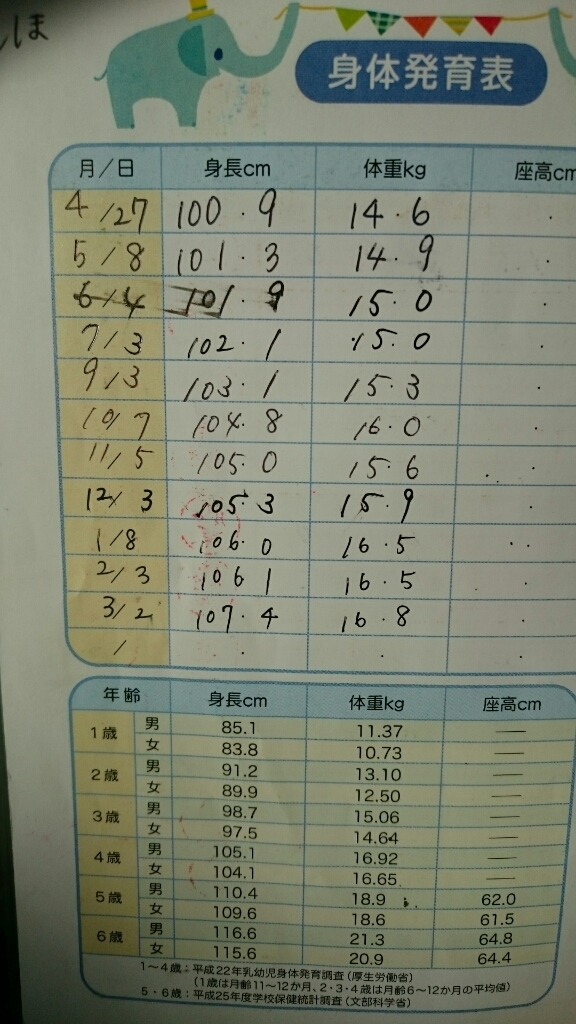 ほ
身体発育表
月/日 身長cm 体重kg 座高cm
4/27 100.9 14.6 .
5/8 101.3 14.9 .
6/4 101.9 15.0 .
7/3 102.1 15.0 .
9/3 103.1 15.3 .
10/7 104.8 16.0 .
11/5 105.0 15.6 .
12/3 105.3 15.9 .
1/8 106.0 16.5 .
2/3 106.1 16.5 .
3/2 107.4 16.8 .
/ . . .
年齢 身長cm 体重kg 座高cm
1歳 男 85.1 11.37 —
女 83.8 10.73 —
2歳 男 91.2 13.10 —
女 89.9 12.50 —
3歳 男 98.7 15.06 —
女 97.5 14.64 —
4歳 男 105.1 16.92 —
女 104.1 16.65 —
5歳 男 110.4 18.9 62.0
女 109.6 18.6 61.5
6歳 男 116.6 21.3 64.8
女 115.6 20.9 64.4
1~4歳:平成22年乳幼児身体発育調査(厚生労働省)
(1歳は月齢11~12か月、2・3・4歳は月齢6~12か月の平均値)
5・6歳:平成25年度学校保健統計調査(文部科学省)